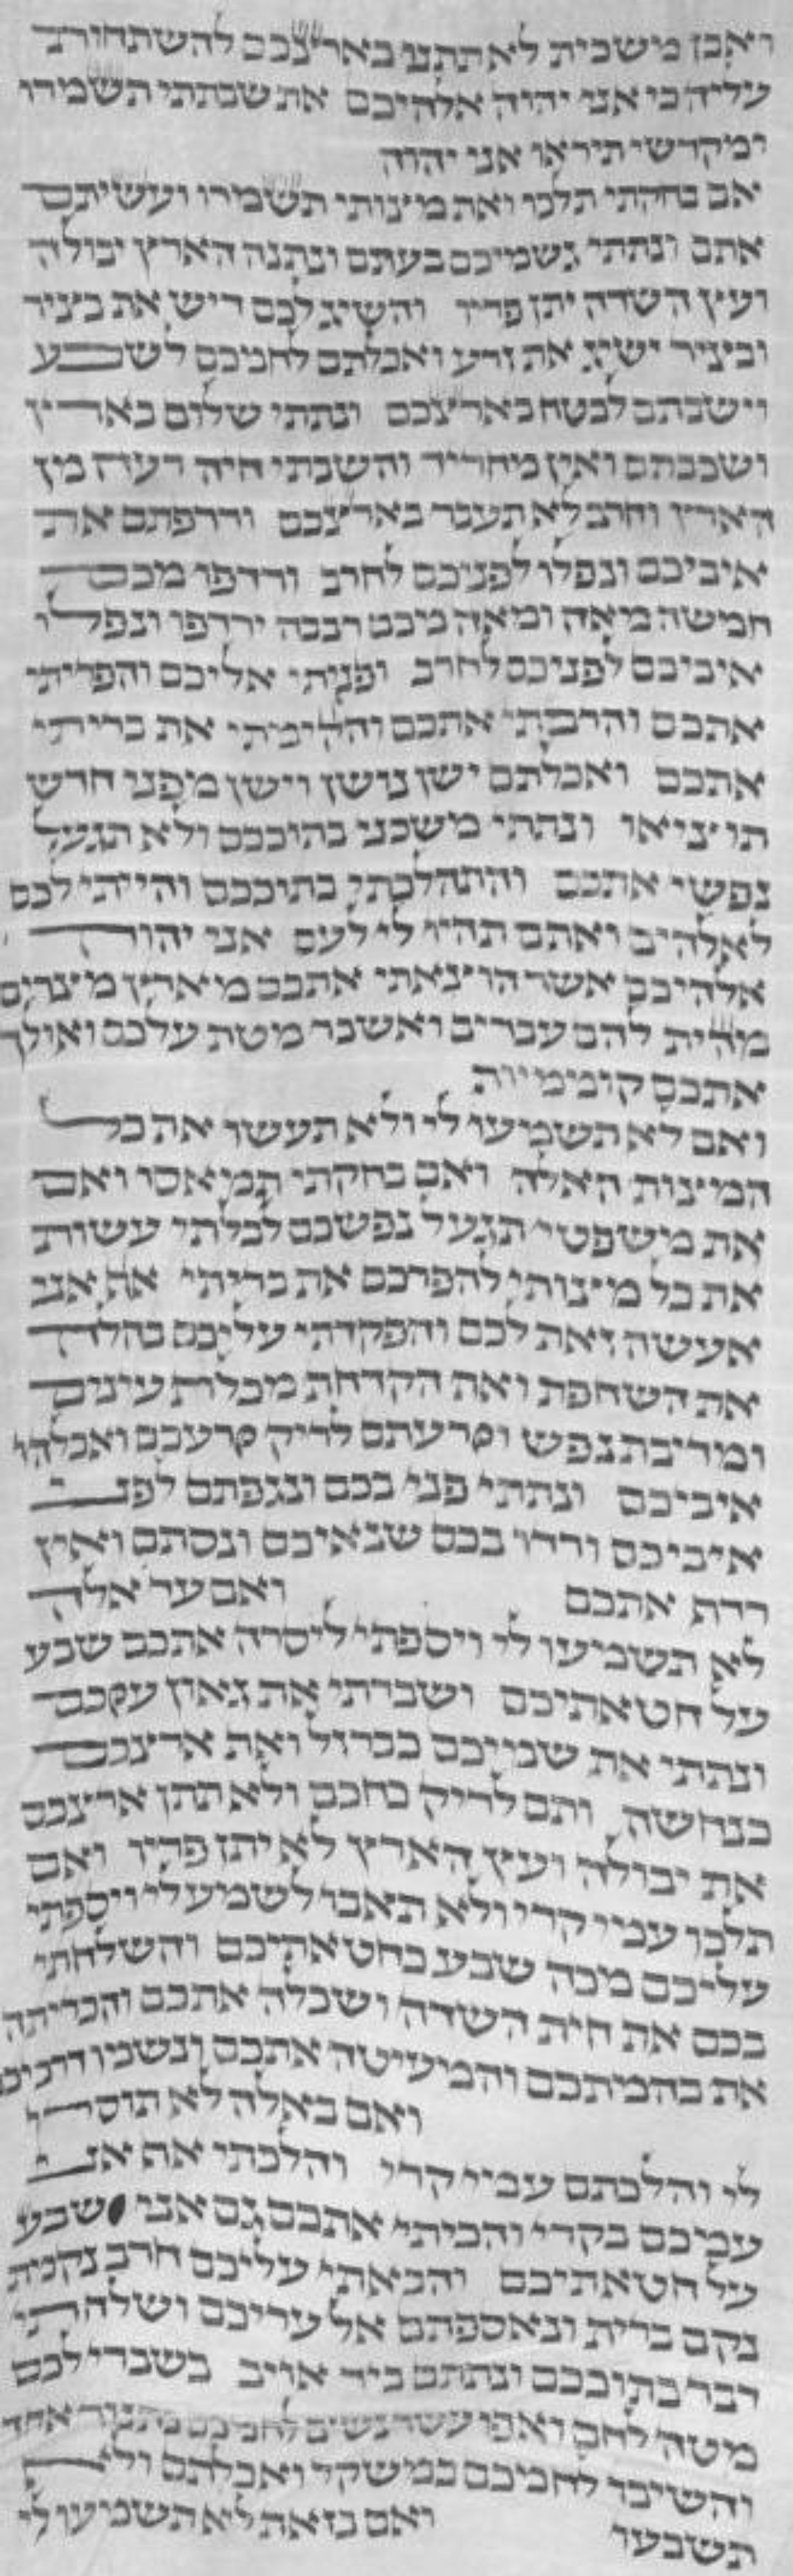 ואבן משכית לא תתנו בארצכם להשתחות
עליה כי אני יהוה אלהיכם את שבתתי תשמרו
ומקדשי תיראו אני יהוה
אם בחקתי תלכו ואת מצותי תשמרו ועשיתם
אתם ונתתי גשמיכם בעתם ונתנה הארץ יבולה
ועץ השדה יתן פריו והשיג לכם דיש את בציר
ובציר ישיג את זרע ואכלתם לחמכם לשבע
וישבתם לבטח בארצכם ונתתי שלום בארץ
ושכבתם ואין מחריד והשבתי חיה רעה מן
הארץ וחרב לא תעבר בארצכם ורדפתם את
איביכם ונפלו לפניכם לחרב ורדפו מכם
חמשה מאה ומאה מכם רבבה ירדפו ונפלו
איביכם לפניכם לחרב ופניתי אליכם והפריתי
אתכם והרביתי אתכם והקימתי את בריתי
אתכם ואכלתם ישן נושן וישן מפני חדש
תוציאו ונתתי משכני בתוככם ולא תגעל
נפשי אתכם והתהלכתי בתוככם והייתי לכם
לאלהים ואתם תהיו לי לעם אני יהוה
אלהיכם אשר הוצאתי אתכם מארץ מצרים
מהית להם עבדים ואשבר מטת עלכם ואולך
אתכם קוממיות
ואם לא תשמעו לי ולא תעשו את כל
המצות האלה ואם בחקתי תמאסו ואם
את משפטי תגעל נפשכם לבלתי עשות
את כל מצותי להפרכם את בריתי אף אני
אעשה זאת לכם והפקדתי עליכם בהלה
את השחפת ואת הקדחת מכלות עינים
ומדיבת נפש וזרעתם לריק זרעכם ואכלהו
איביכם ונתתי פני בכם ונגפתם לפני
איביכם ורדו בכם שנאיכם ונסתם ואין
רדף אתכם ואם עד אלה
לא תשמעו לי ויספתי ליסרה אתכם שבע
על חטאתיכם ושברתי את גאון עזכם
ונתתי את שמיכם כברזל ואת ארצכם
כנחשה ותם לריק כחכם ולא תתן ארצכם
את יבולה ועץ הארץ לא יתן פריו ואם
תלכו עמי קרי ולא תאבו לשמע לי ויספתי
עליכם מכה שבע כחטאתיכם והשלחתי
בכם את חית השדה ושכלה אתכם והכריתה
את בהמתכם והמעיטה אתכם ונשמו דרכיכם
ואם באלה לא תוסרו
לי והלכתם עמי קרי והלכתי אף אני
עמכם בקרי והכיתי אתכם גם אני שבע
על חטאתיכם והבאתי עליכם חרב נקמת
נקם ברית ונאספתם אל עריכם ושלחתי
דבר בתוככם ונתתם ביד אויב בשברי לכם
מטה לחם ואפו עשר נשים לחמכם בתנור אחד
והשיבו לחמכם במשקל ואכלתם ולא
תשבעו ואם בזאת לא תשמעו לי